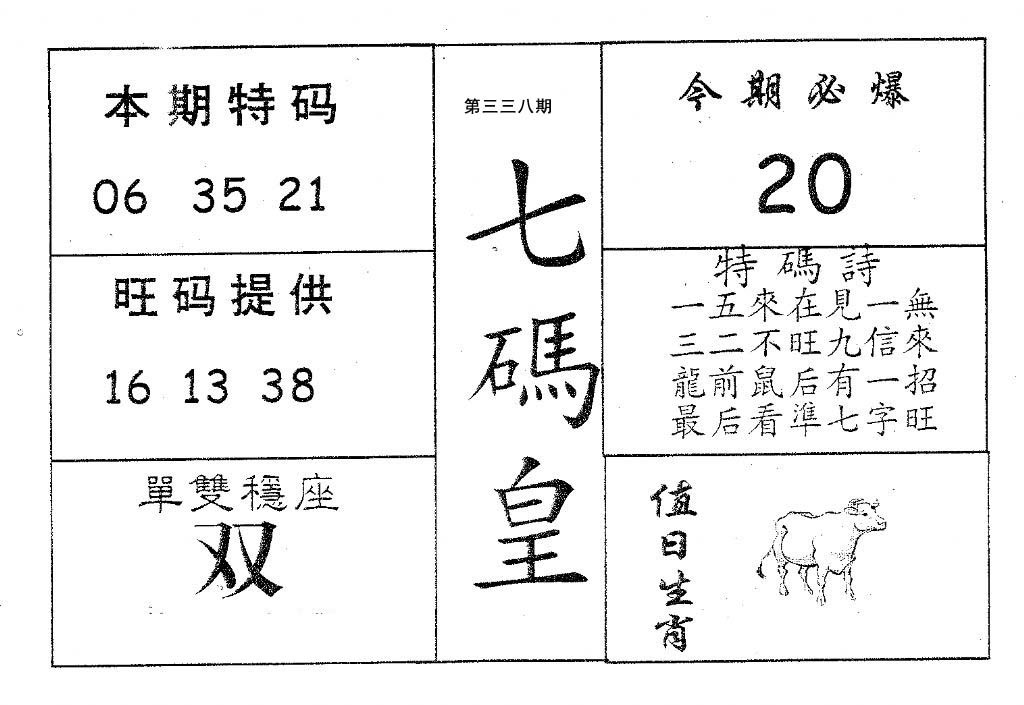 本期特码
06 35 21
旺码提供
16 13 38
單雙穩座
双
第三三八期
七碼皇
今期必爆
20
特碼詩
一五來在見一無
三二不旺九信來
龍前鼠后有一招
最后看準七字旺
值日生肖